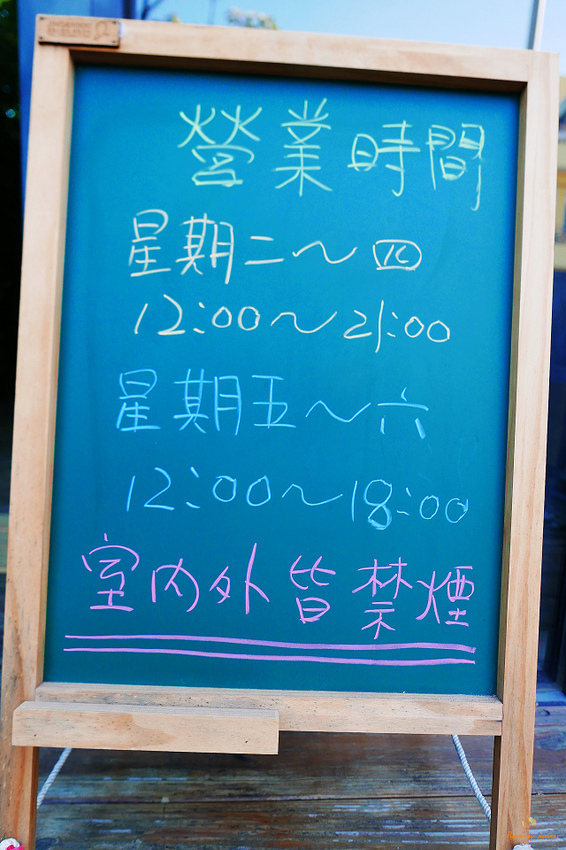 營業時間
星期二～四
12:00～21:00
星期五～六
12:00～18:00
室內外皆禁煙